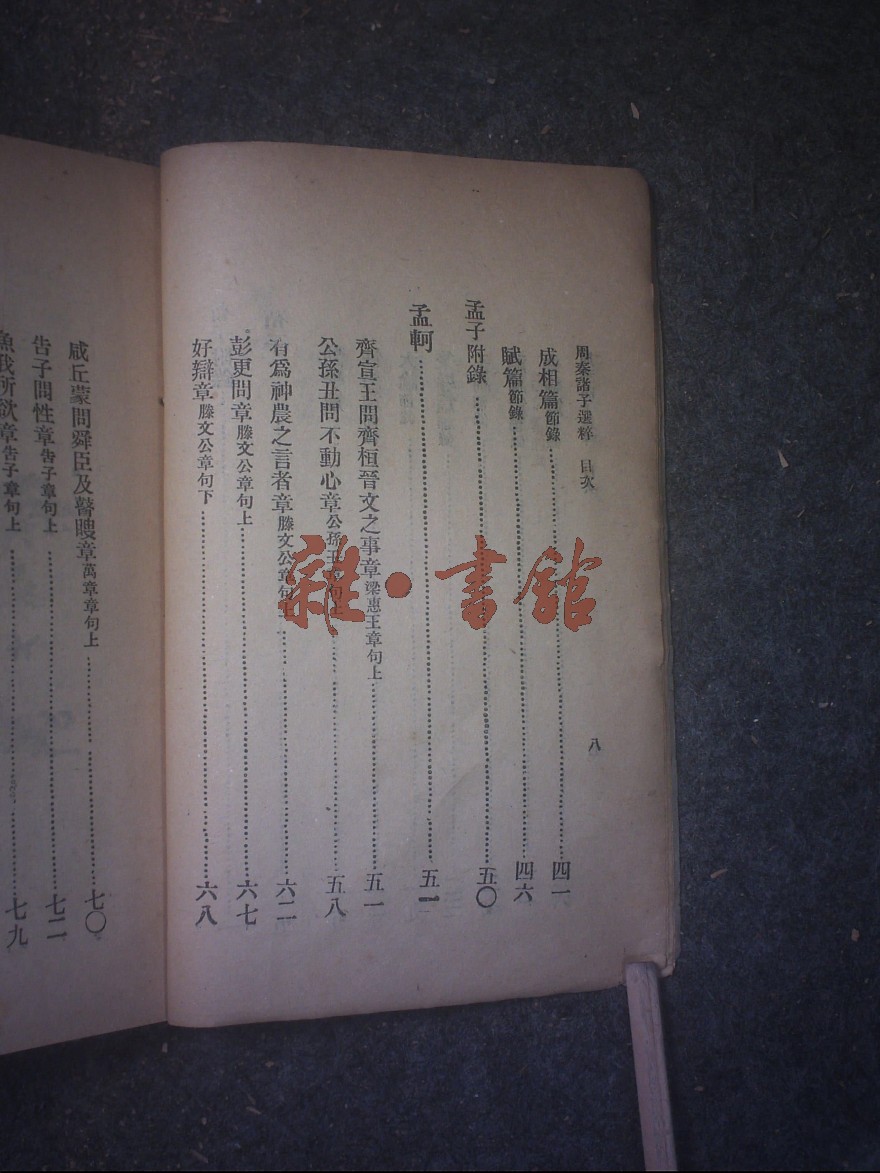 周秦諸子選粹 目次
八
成相篇節錄 四一
賦篇節錄 四六
孟子附錄 五〇
孟軻 五一
齊宣王問齊桓晉文之事章梁惠王章句上 五一
公孫丑問不動心章公孫丑章句上 五八
有爲神農之言者章滕文公章句上 六二
彭更問章滕文公章句上 六七
好辯章滕文公章句下 六八
咸丘蒙問舜臣及瞽瞍章萬章章句上 七〇
告子問性章告子章句上 七二
魚我所欲章告子章句上 七九
雜·書館